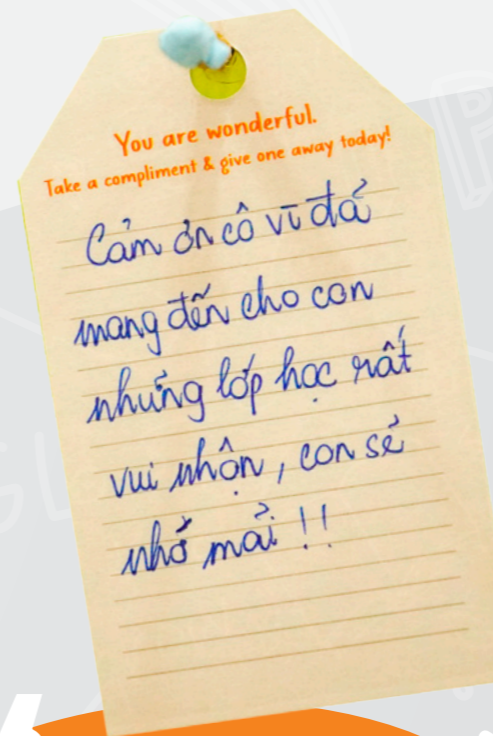 You are wonderful.
Take a compliment & give one away today!
Cảm ơn cô vì đã
mang đến cho con
những lớp học rất
vui nhộn, con sẽ
nhớ mãi !!